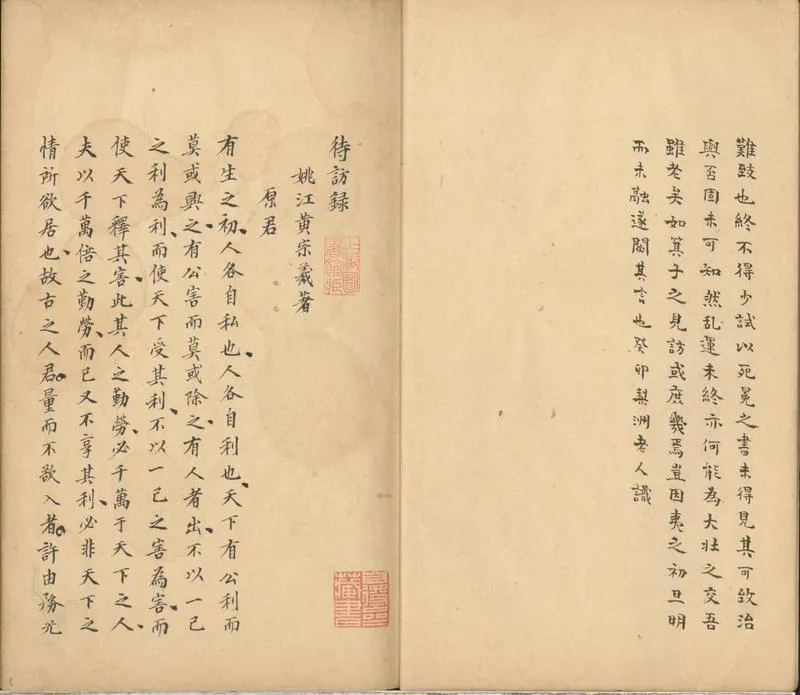 難致也終不得少試以死冕之書未得見其可致治
與否固未可知然乱運未終亦何能為大壯之交吾
雖老矣如箕子之見訪或庶幾焉豈因夷之初旦明
而未融遂閟其言也癸卯梨洲老人識
待訪録
上海圖
書館藏
姚江黃宗羲著
原君
有生之初、人各自私也、人各自利也、天下有公利而
莫或興之、有公害而莫或除之、有人者出、不以一己
之利為利、而使天下受其利、不以一己之害為害、而
使天下釋其害、此其人之勤勞、必千萬于天下之人、
夫以千萬倍之勤勞、而已又不享其利、必非天下之
情所欲居也、故古之人君。量而不欲入者。許由務光
藏書